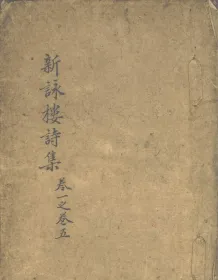 新詠樓詩集
卷一之卷五